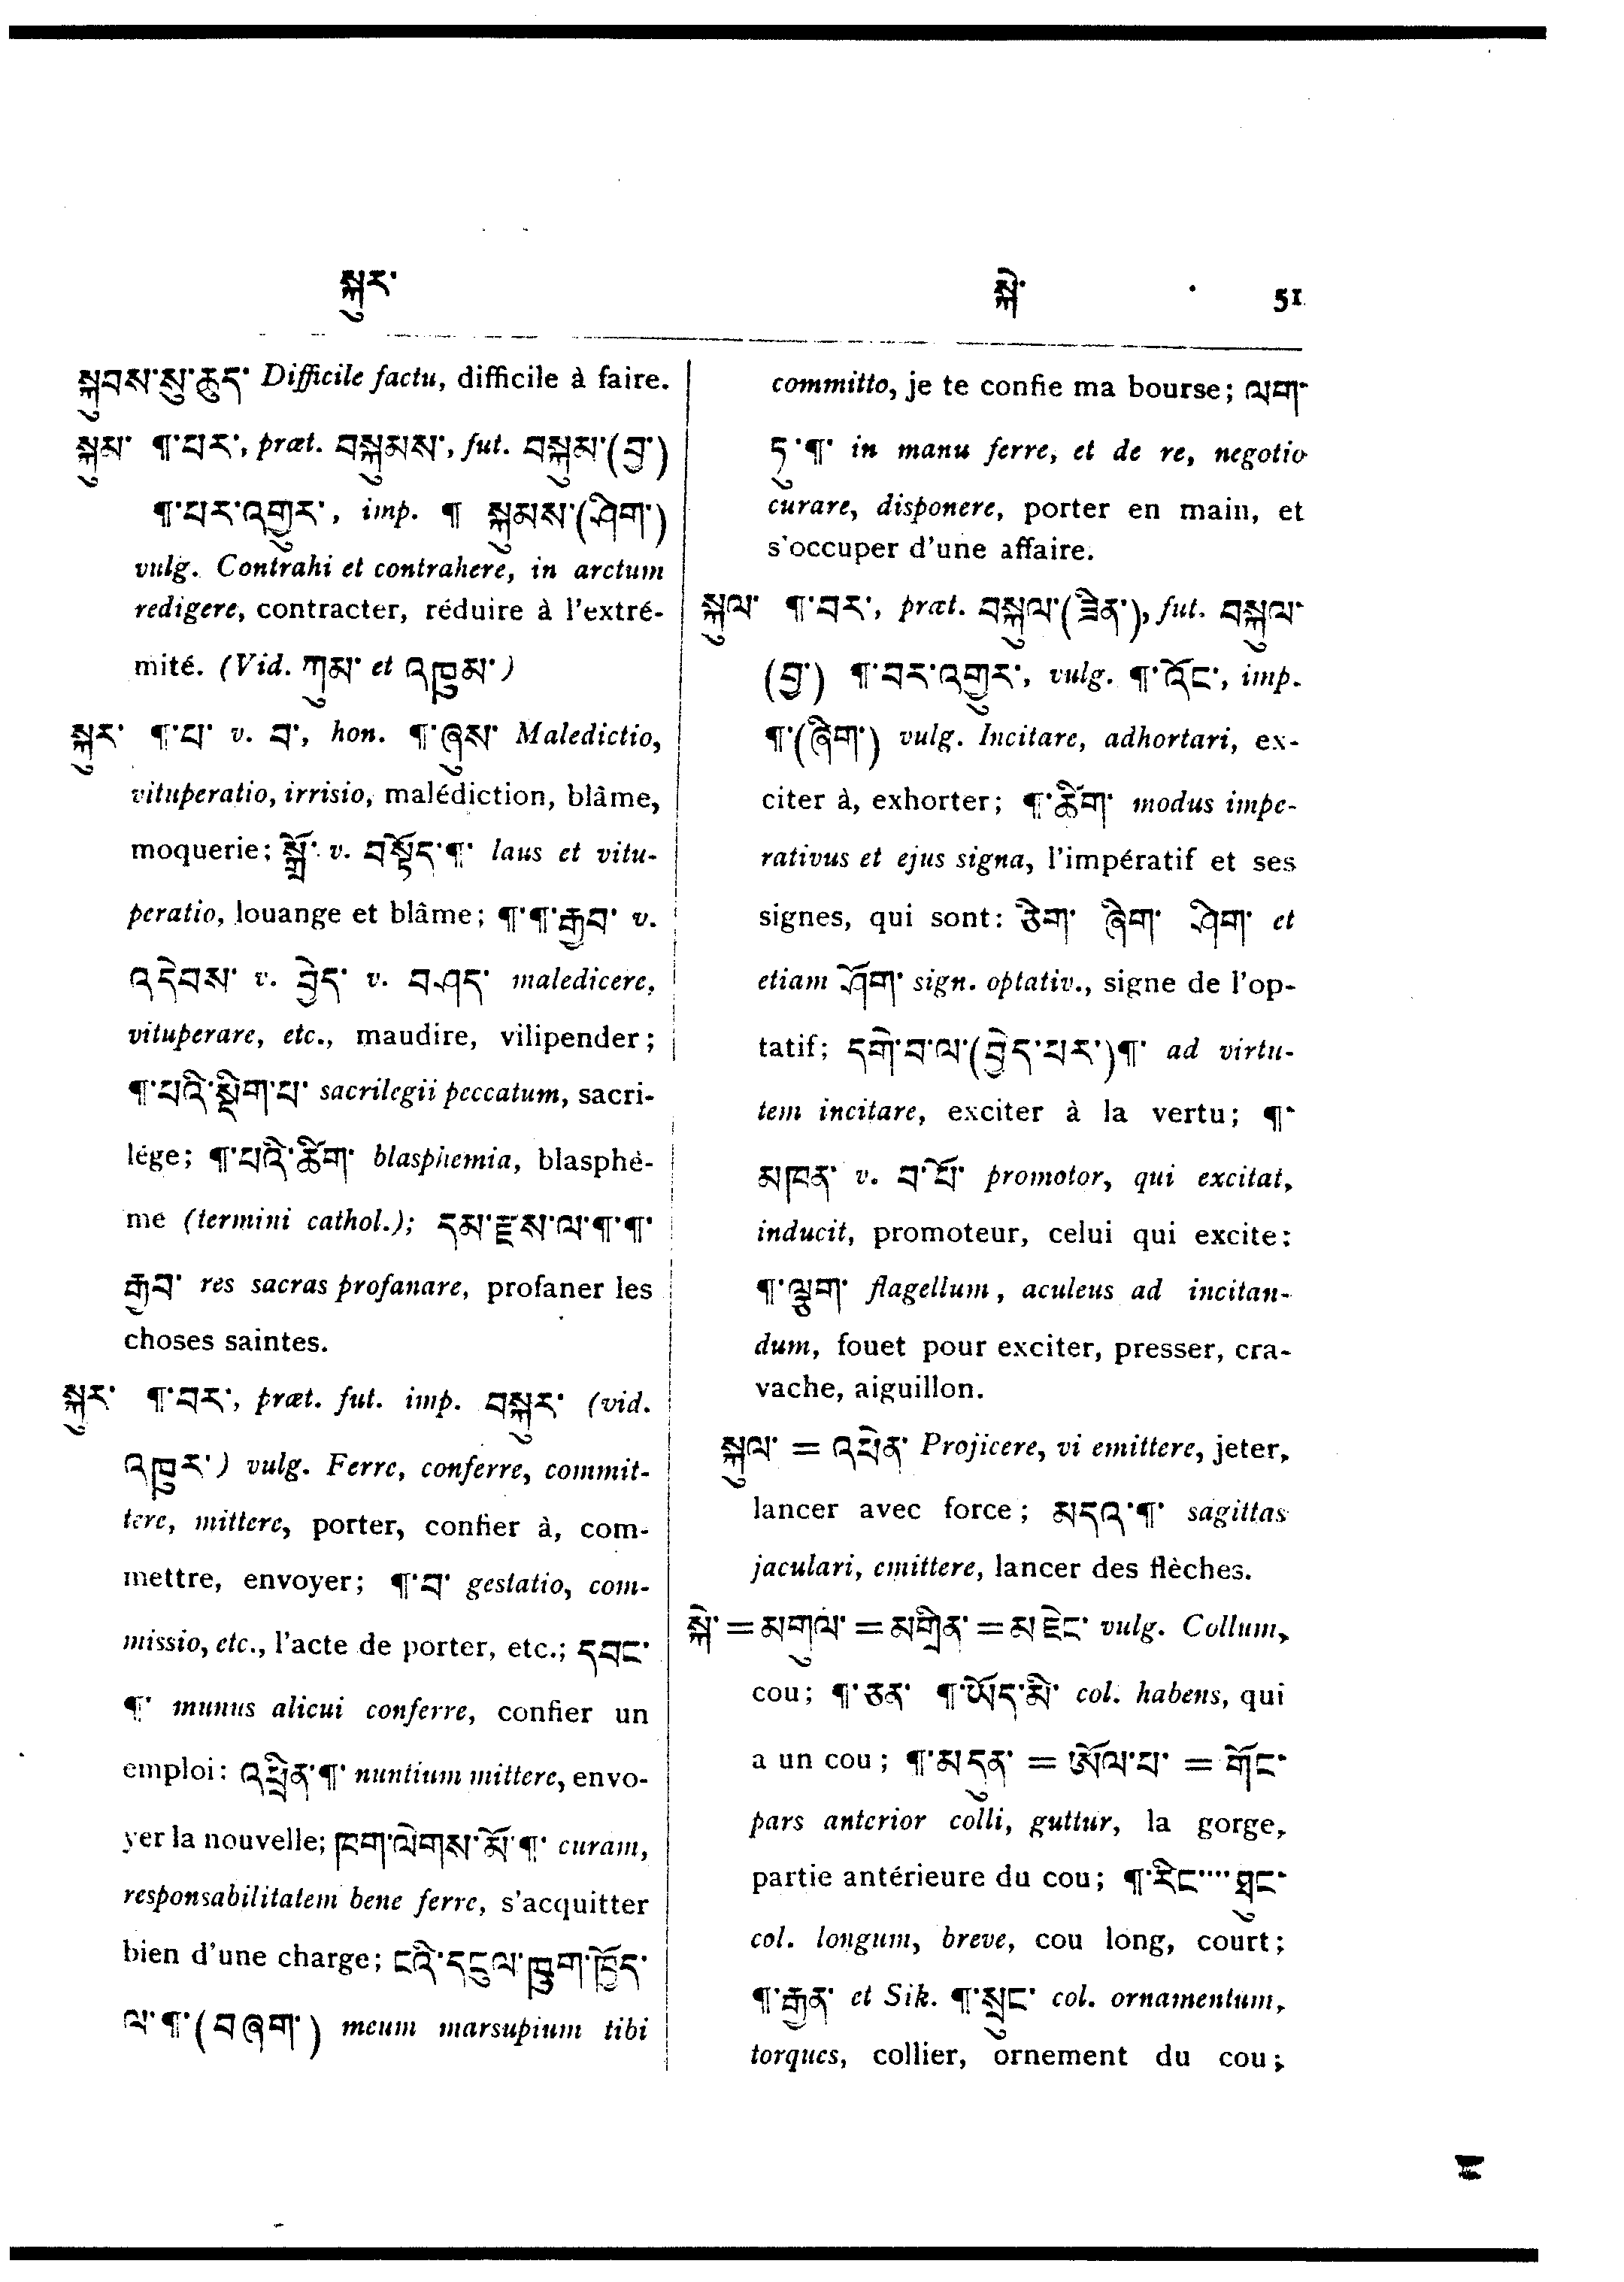 སྐུར་ སྐེ་ 51
སྐུབས་སུ་རྐུད་ Difficile factu, difficile à faire.
སྐུམ་ ¶་པར་, præt. བསྐུམས་, fut. བསྐུམ་(བྱ་)
¶་པར་འགྱུར་, imp. ¶ སྐུམས་(ཤིག་)
vulg. Contrahi et contrahere, in arctum
redigere, contracter, réduire à l'extré-
mité. (Vid. ཀུམ་ et འཁུམ་)
སྐུར་ ¶་པ་ v. བ་, hon. ¶་ཞུས་ Maledictio,
vituperatio, irrisio, malédiction, blâme,
moquerie; སྒྲོ་ v. བསྟོད་¶་ laus et vitu-
peratio, louange et blâme; ¶་¶་རྒྱབ་ v.
འདེབས་ v. བྱེད་ v. བཤད་ maledicere,
vituperare, etc., maudire, vilipender;
¶་པའི་སྡིག་པ་ sacrilegii peccatum, sacri-
lége; ¶་པའི་ཚིག་ blasphemia, blasphè-
me (termini cathol.); དམ་རྫས་ལ་¶་¶་
རྒྱབ་ res sacras profanare, profaner les
choses saintes.
སྐུར་ ¶་བར་, præt. fut. imp. བསྐུར་ (vid.
འཁུར་) vulg. Ferre, conferre, commit-
tere, mittere, porter, confier à, com-
mettre, envoyer; ¶་བ་ gestatio, com-
missio, etc., l'acte de porter, etc.; དབང་
¶་ munus alicui conferre, confier un
emploi: འཕྲིན་¶་ nuntium mittere, envo-
yer la nouvelle; ཁག་ལེགས་མོ་¶་ curam,
responsabilitatem bene ferre, s'acquitter
bien d'une charge; ངའི་དངུལ་ཁུག་ཁྱོད་
ལ་¶་(བཞག་) meum marsupium tibi
committo, je te confie ma bourse; ལག་
ཏུ་¶་ in manu ferre, et de re, negotio
curare, disponere, porter en main, et
s'occuper d'une affaire.
སྐུལ་ ¶་བར་, præt. བསྐུལ་(ཟིན་), fut. བསྐུལ་
(བྱ་) ¶་བར་འགྱུར་, vulg. ¶་འོང་, imp.
¶་(ཞིག་) vulg. Incitare, adhortari, ex-
citer à, exhorter; ¶་ཚིག་ modus impe-
rativus et ejus signa, l'impératif et ses
signes, qui sont: ཅིག་ ཞིག་ ཤིག་ et
etiam ཤོག་ sign. optativ., signe de l'op-
tatif; དགེ་བ་ལ་(བྱེད་པར་)¶་ ad virtu-
tem incitare, exciter à la vertu; ¶་
མཁན་ v. བ་པོ་ promotor, qui excitat,
inducit, promoteur, celui qui excite:
¶་ལྕུག་ flagellum, aculeus ad incitan-
dum, fouet pour exciter, presser, cra-
vache, aiguillon.
སྐུལ་ = འཕེན་ Projicere, vi emittere, jeter,
lancer avec force; མདའ་¶་ sagittas
jaculari, emittere, lancer des flèches.
སྐེ་ = མགུལ་ = མགྲིན་ = མཇིང་ vulg. Collum,
cou; ¶་ཅན་ ¶་ཡོད་མི་ col. habens, qui
a un cou; ¶་མདུན་ = ཨོལ་པ་ = གོང་
pars anterior colli, guttur, la gorge,
partie antérieure du cou; ¶་རིང་···· ཐུང་
col. longum, breve, cou long, court;
¶་རྒྱན་ et Sik. ¶་སྲུང་ col. ornamentum,
torques, collier, ornement du cou;